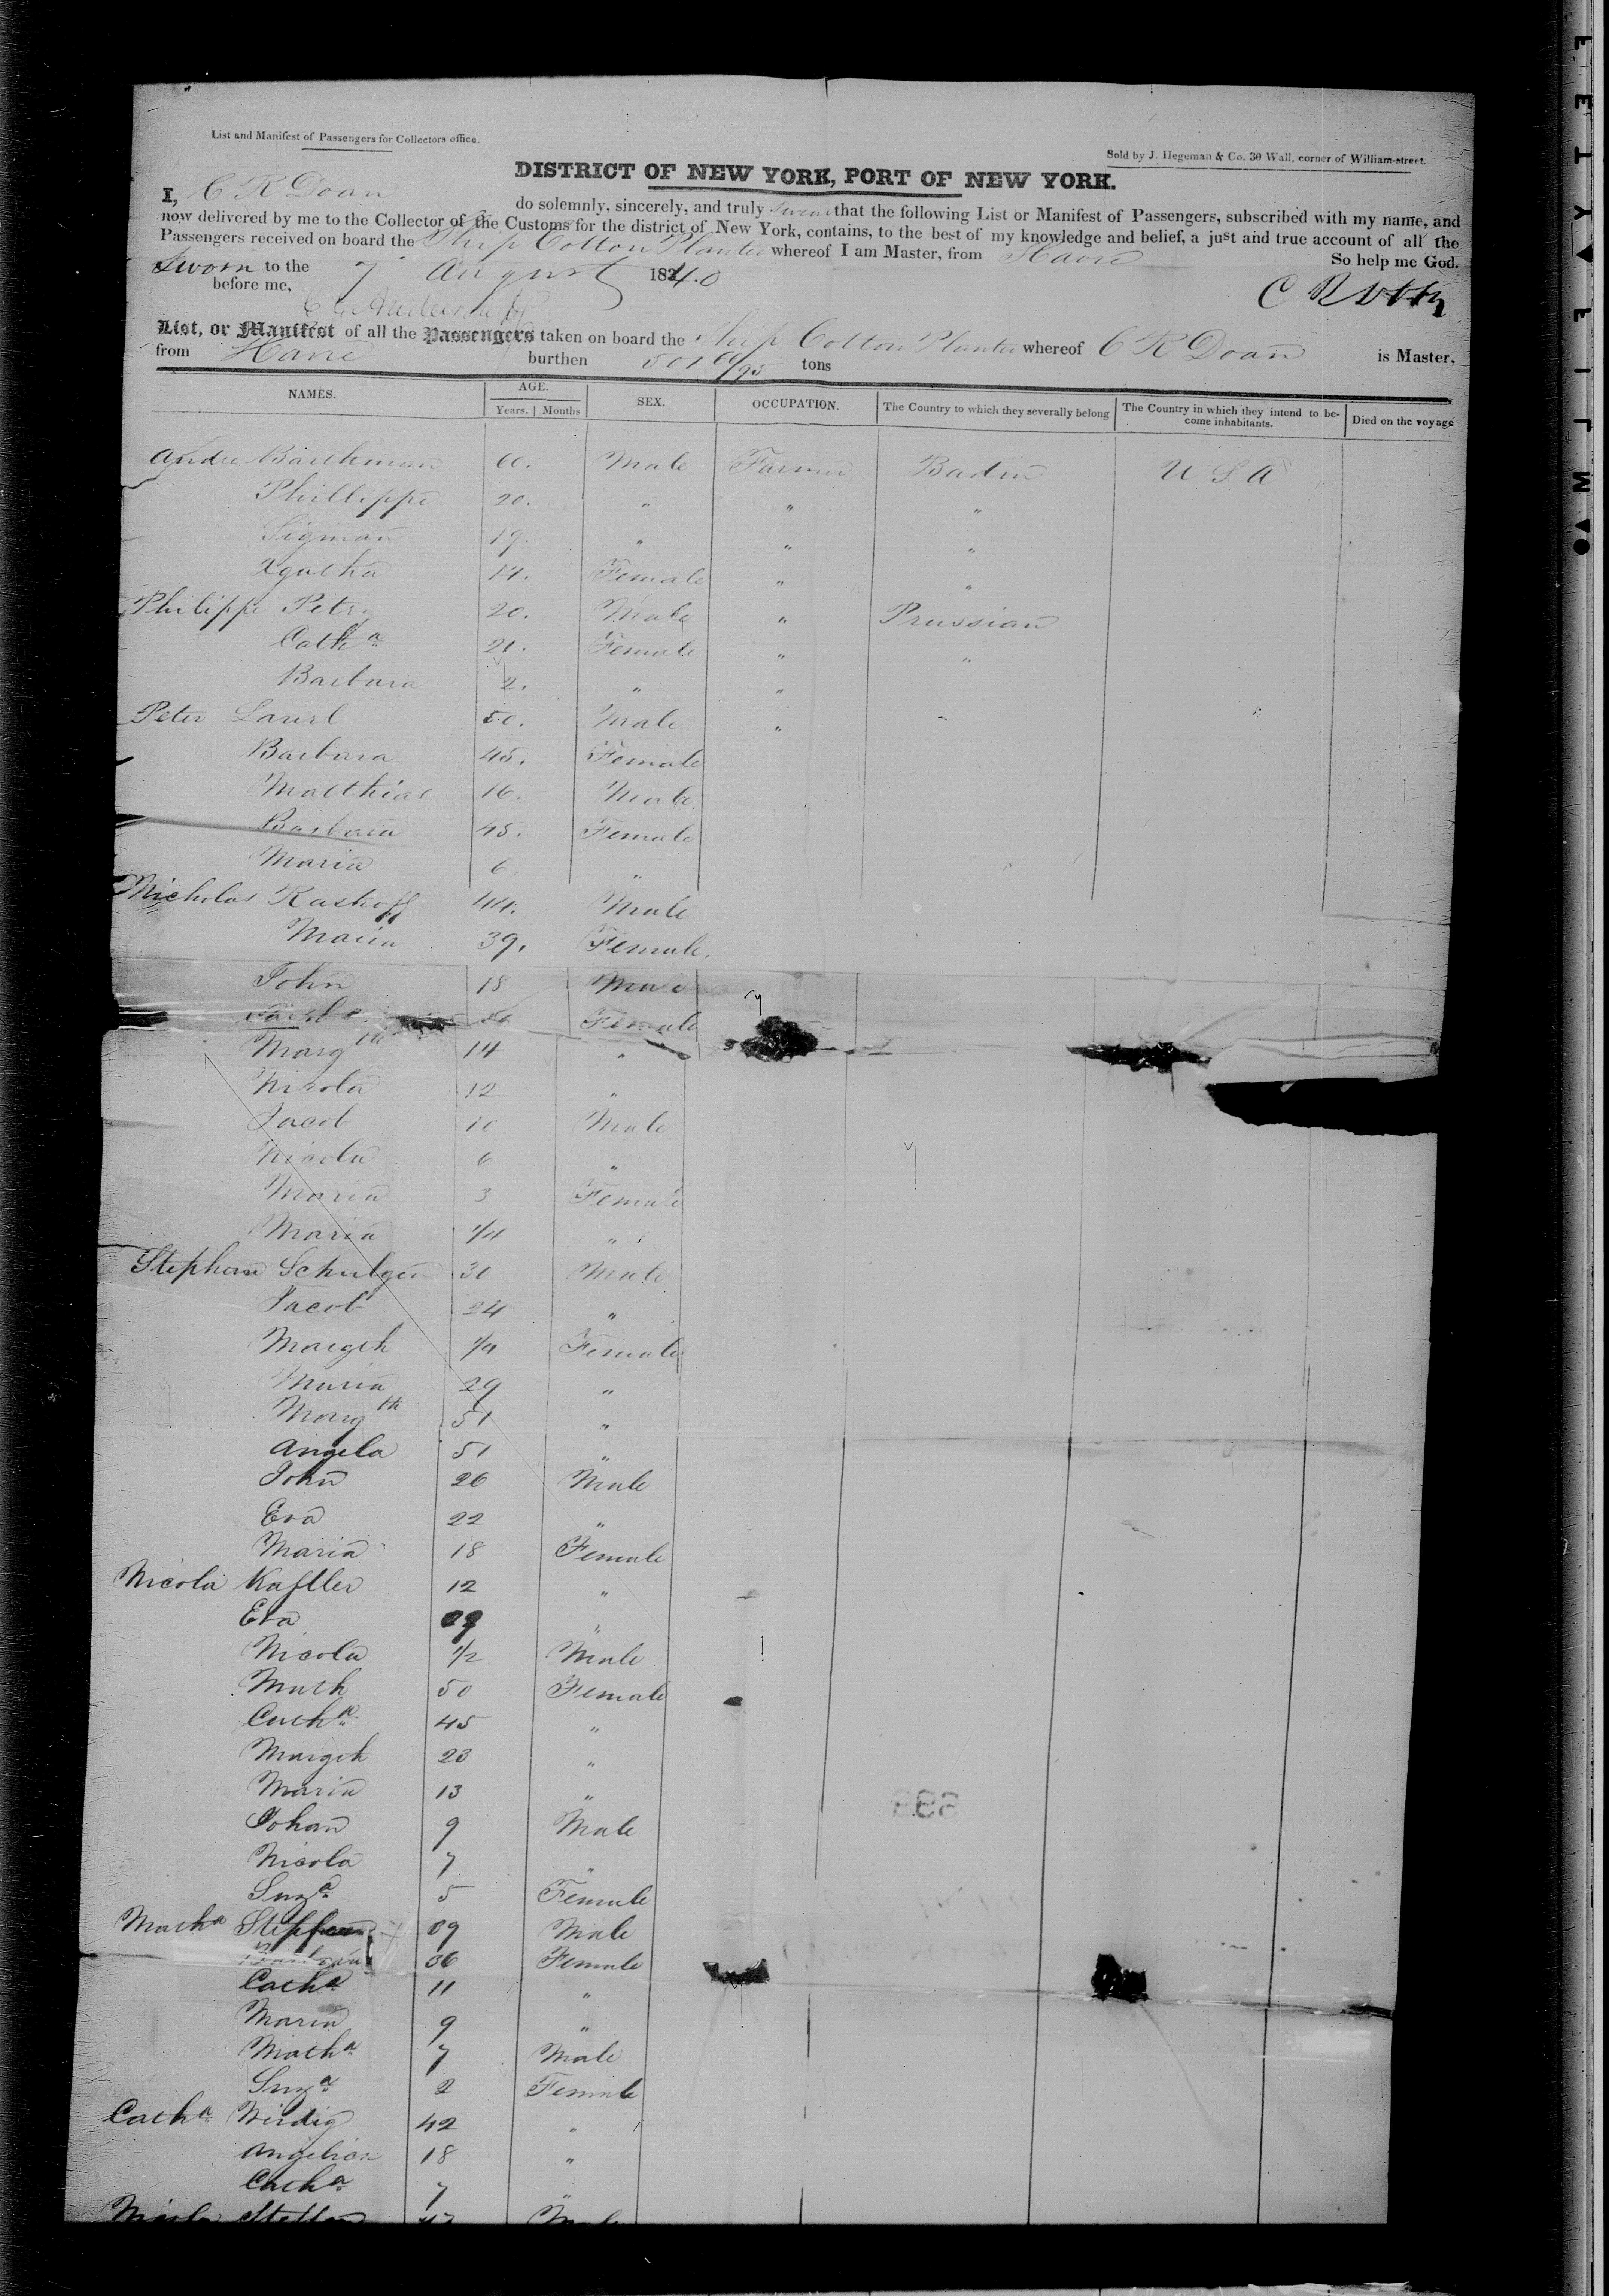 List and Manifest of Passengers for Collectors office.
Sold by J. Hegeman & Co. 30 Wall, corner of William-street.
DISTRICT OF NEW YORK, PORT OF NEW YORK.
I, C R Doan do solemnly, sincerely, and truly swear that the following List or Manifest of Passengers, subscribed with my name, and
now delivered by me to the Collector of the Customs for the district of New York, contains, to the best of my knowledge and belief, a just and true account of all the
Passengers received on board the Ship Cotton Planter whereof I am Master, from Havre
So help me God.
Sworn to the 7 August 1840
before me,
C R Doan
List, or Manifest of all the Passengers taken on board the Ship Cotton Planter whereof C R Doan is Master,
from Havre burthen tons
NAMES. AGE. SEX. OCCUPATION. The Country to which they severally belong The Country in which they intend to become inhabitants. Died on the voyage
Years. Months
Andre Barthman 60. Male Farmer Baden U S A
Phillippe 20. " " "
Sigman 19. " " "
Agatha 14. Female " "
Philippe Petry 20. Male " Prussian
Cath a 21. Female " "
Barbara 2. " "
Peter 50. Male "
Barbara 45. Female
Matthias 16. Male
Barbara 45. Female
Maria 6 "
Nicholas Kashoff 44. Male
Maria 39. Female.
John 18 Male
Female
Marg th 14 "
Nicola 12 "
Jacob 10 Male
Nicola 6 "
Maria 3 Female
Maria "
Stephan Schulgen 30 Male
Jacob 24 "
Margth Female
Maria 29 "
Marg th 51 "
Angela 51 "
John 26 Male
Eva 22 "
Maria 18 Female
Nicola Kaftler 12 "
Eva 09 "
Nicola 1/2 Male
Math 50 Female
Cath a 45 "
Margth 23 "
Maria 13 "
Johan 9 Male
Nicola 7 "
Suz a 5 Female
Math a Steffan 39 Male
36 Female
Cath a 11 "
Maria 9 "
Math a 7 Male
Suz a 2 Female
Cath a 42 "
Angelica 18 "
Cath a 7 "
Nicola Male